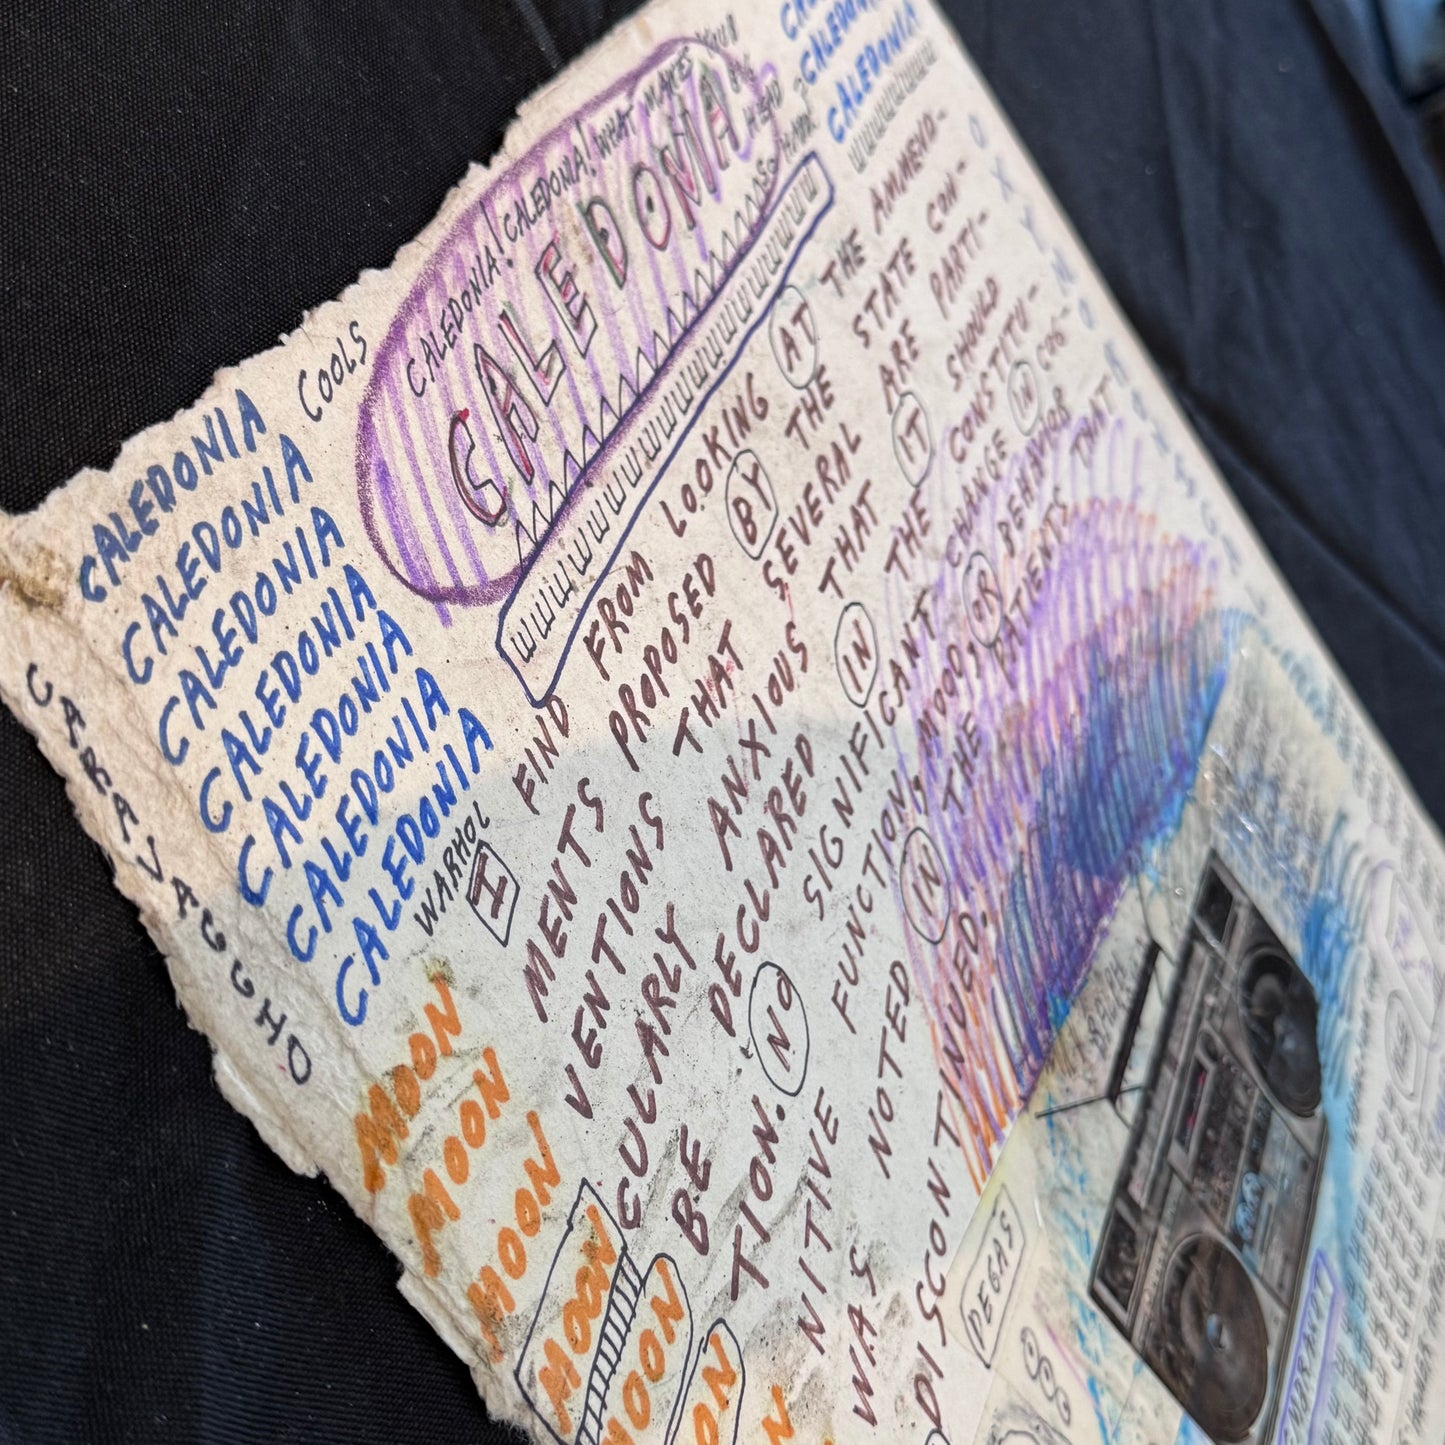 CALEDONIA
CALEDONIA
CALEDONIA
CALEDONIA! CALEDONIA! WHAT MAKES YOUR
BIG
HEAD
SO HARD?
CALEDONIA
WWWWWWWWWWWWWWWWWWWWWW
WWWWWWWW
COOLS
CALEDONIA
CALEDONIA
CALEDONIA
CALEDONIA
CALEDONIA
CALEDONIA
CALEDONIA
CARAVAGGHO
WARHOL
I FIND FROM LOOKING AT THE AMMEND-
MENTS PROPOSED BY THE STATE CON-
VENTIONS THAT SEVERAL ARE PARTI-
CULARLY ANXIOUS THAT IT SHOULD
BE DECLARED IN THE CONSTITU-
TION. NO SIGNIFICANT CHANGE IN COG-
NITIVE FUNCTION, MOODS OR BEHAVIOR
WAS NOTED IN THE PATIENTS THAT
DISCONTINUED.
MOON
MOON
MOON
MOON
MOON
DEGAS